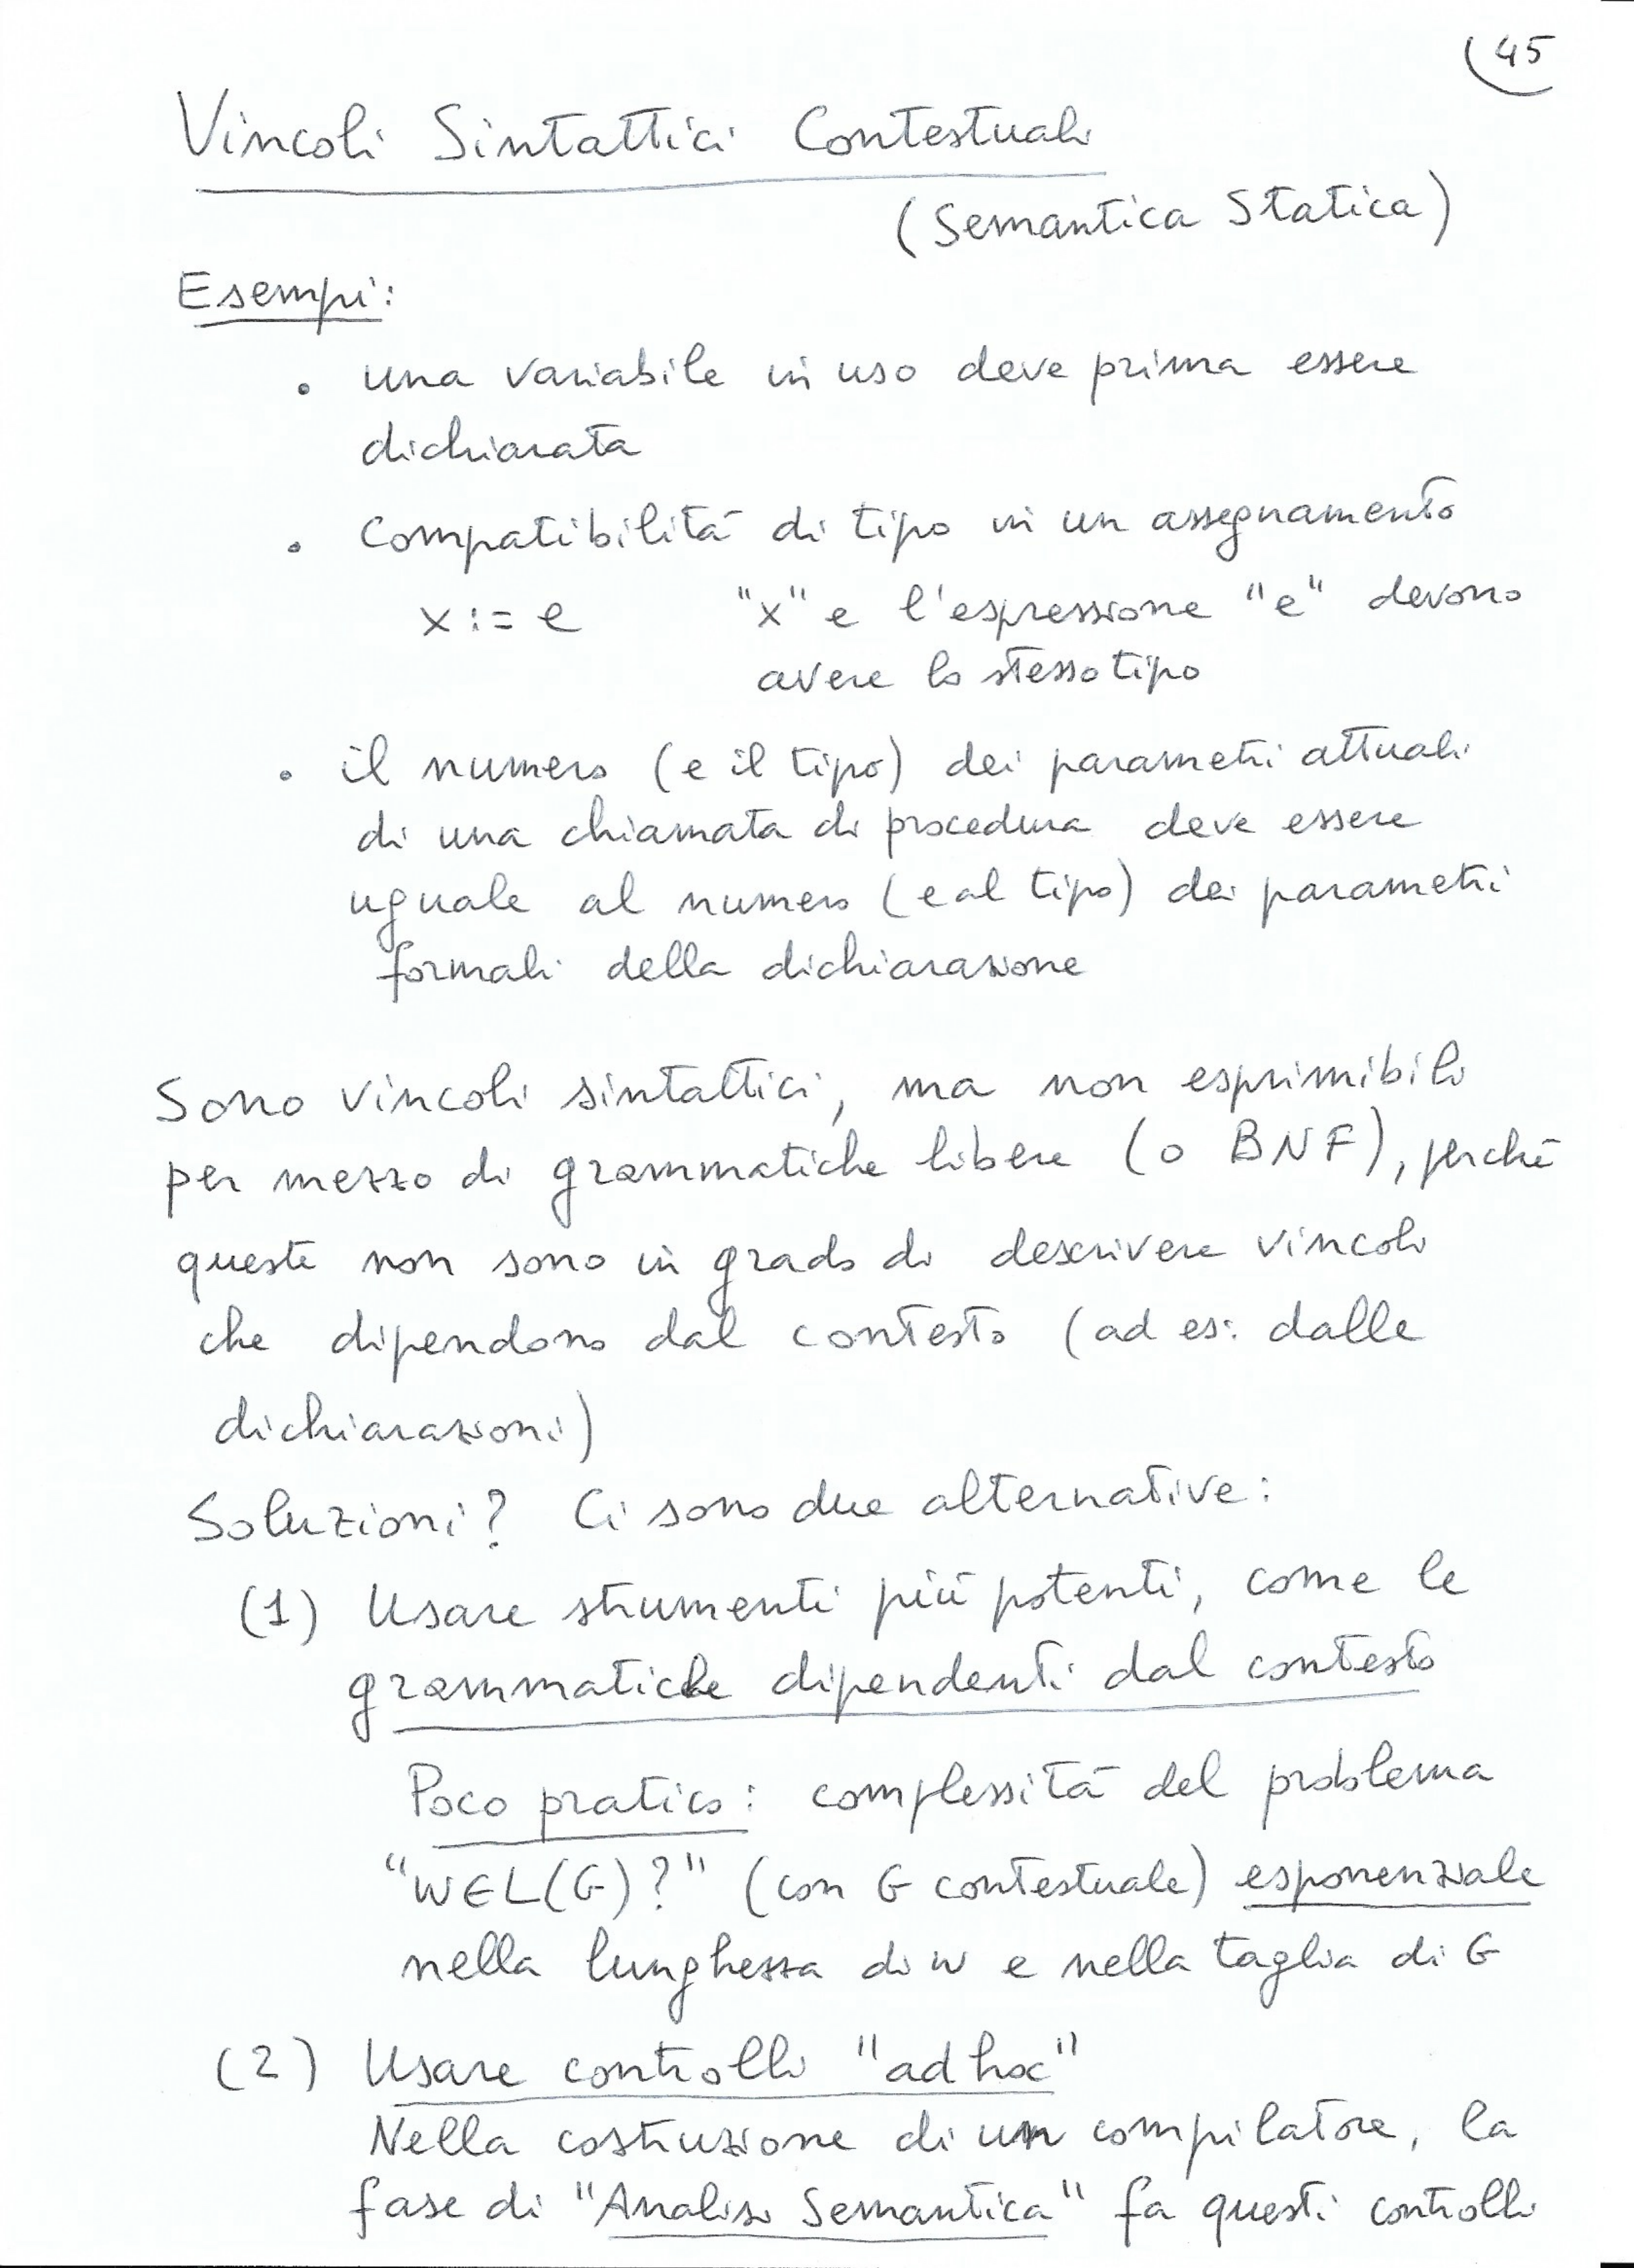 (45
Vincoli Sintattici Contestuali
(Semantica Statica)
Esempi:
• una variabile in uso deve prima essere
dichiarata
• Compatibilità di tipo in un assegnamento
x := e "x" e l'espressione "e" devono
avere lo stesso tipo
• il numero (e il tipo) dei parametri attuali
di una chiamata di procedura deve essere
uguale al numero (e al tipo) dei parametri
formali della dichiarazione
Sono vincoli sintattici, ma non esprimibili
per mezzo di grammatiche libere (o BNF), perché
queste non sono in grado di descrivere vincoli
che dipendono dal contesto (ad es: dalle
dichiarazioni)
Soluzioni? Ci sono due alternative:
(1) Usare strumenti più potenti, come le
grammatiche dipendenti dal contesto
Poco pratico: complessità del problema
"w∈L(G)?" (con G contestuale) esponenziale
nella lunghezza di w e nella taglia di G
(2) Usare controlli "ad hoc"
Nella costruzione di un compilatore, la
fase di "Analisi Semantica" fa questi controlli